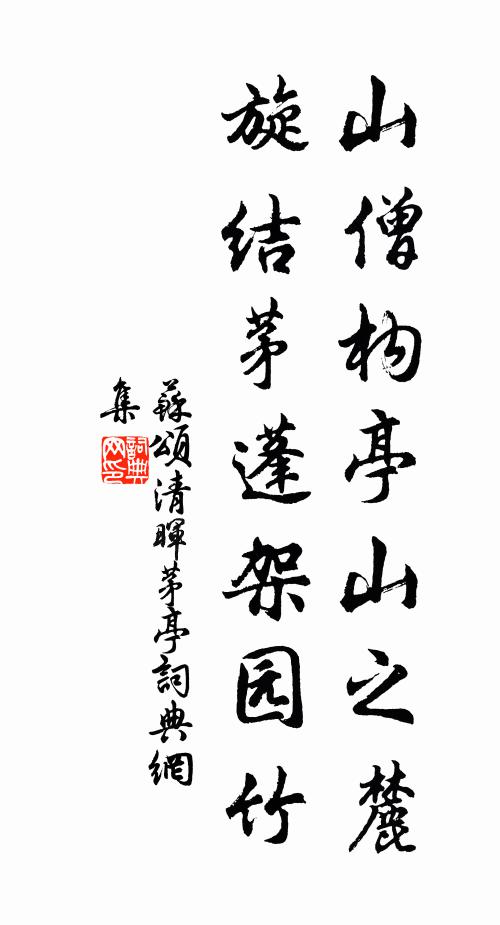 山僧构亭山之麓
旋结茅蓬架园竹
蘇頌清暉茅亭詞典網
集
詞典
网印